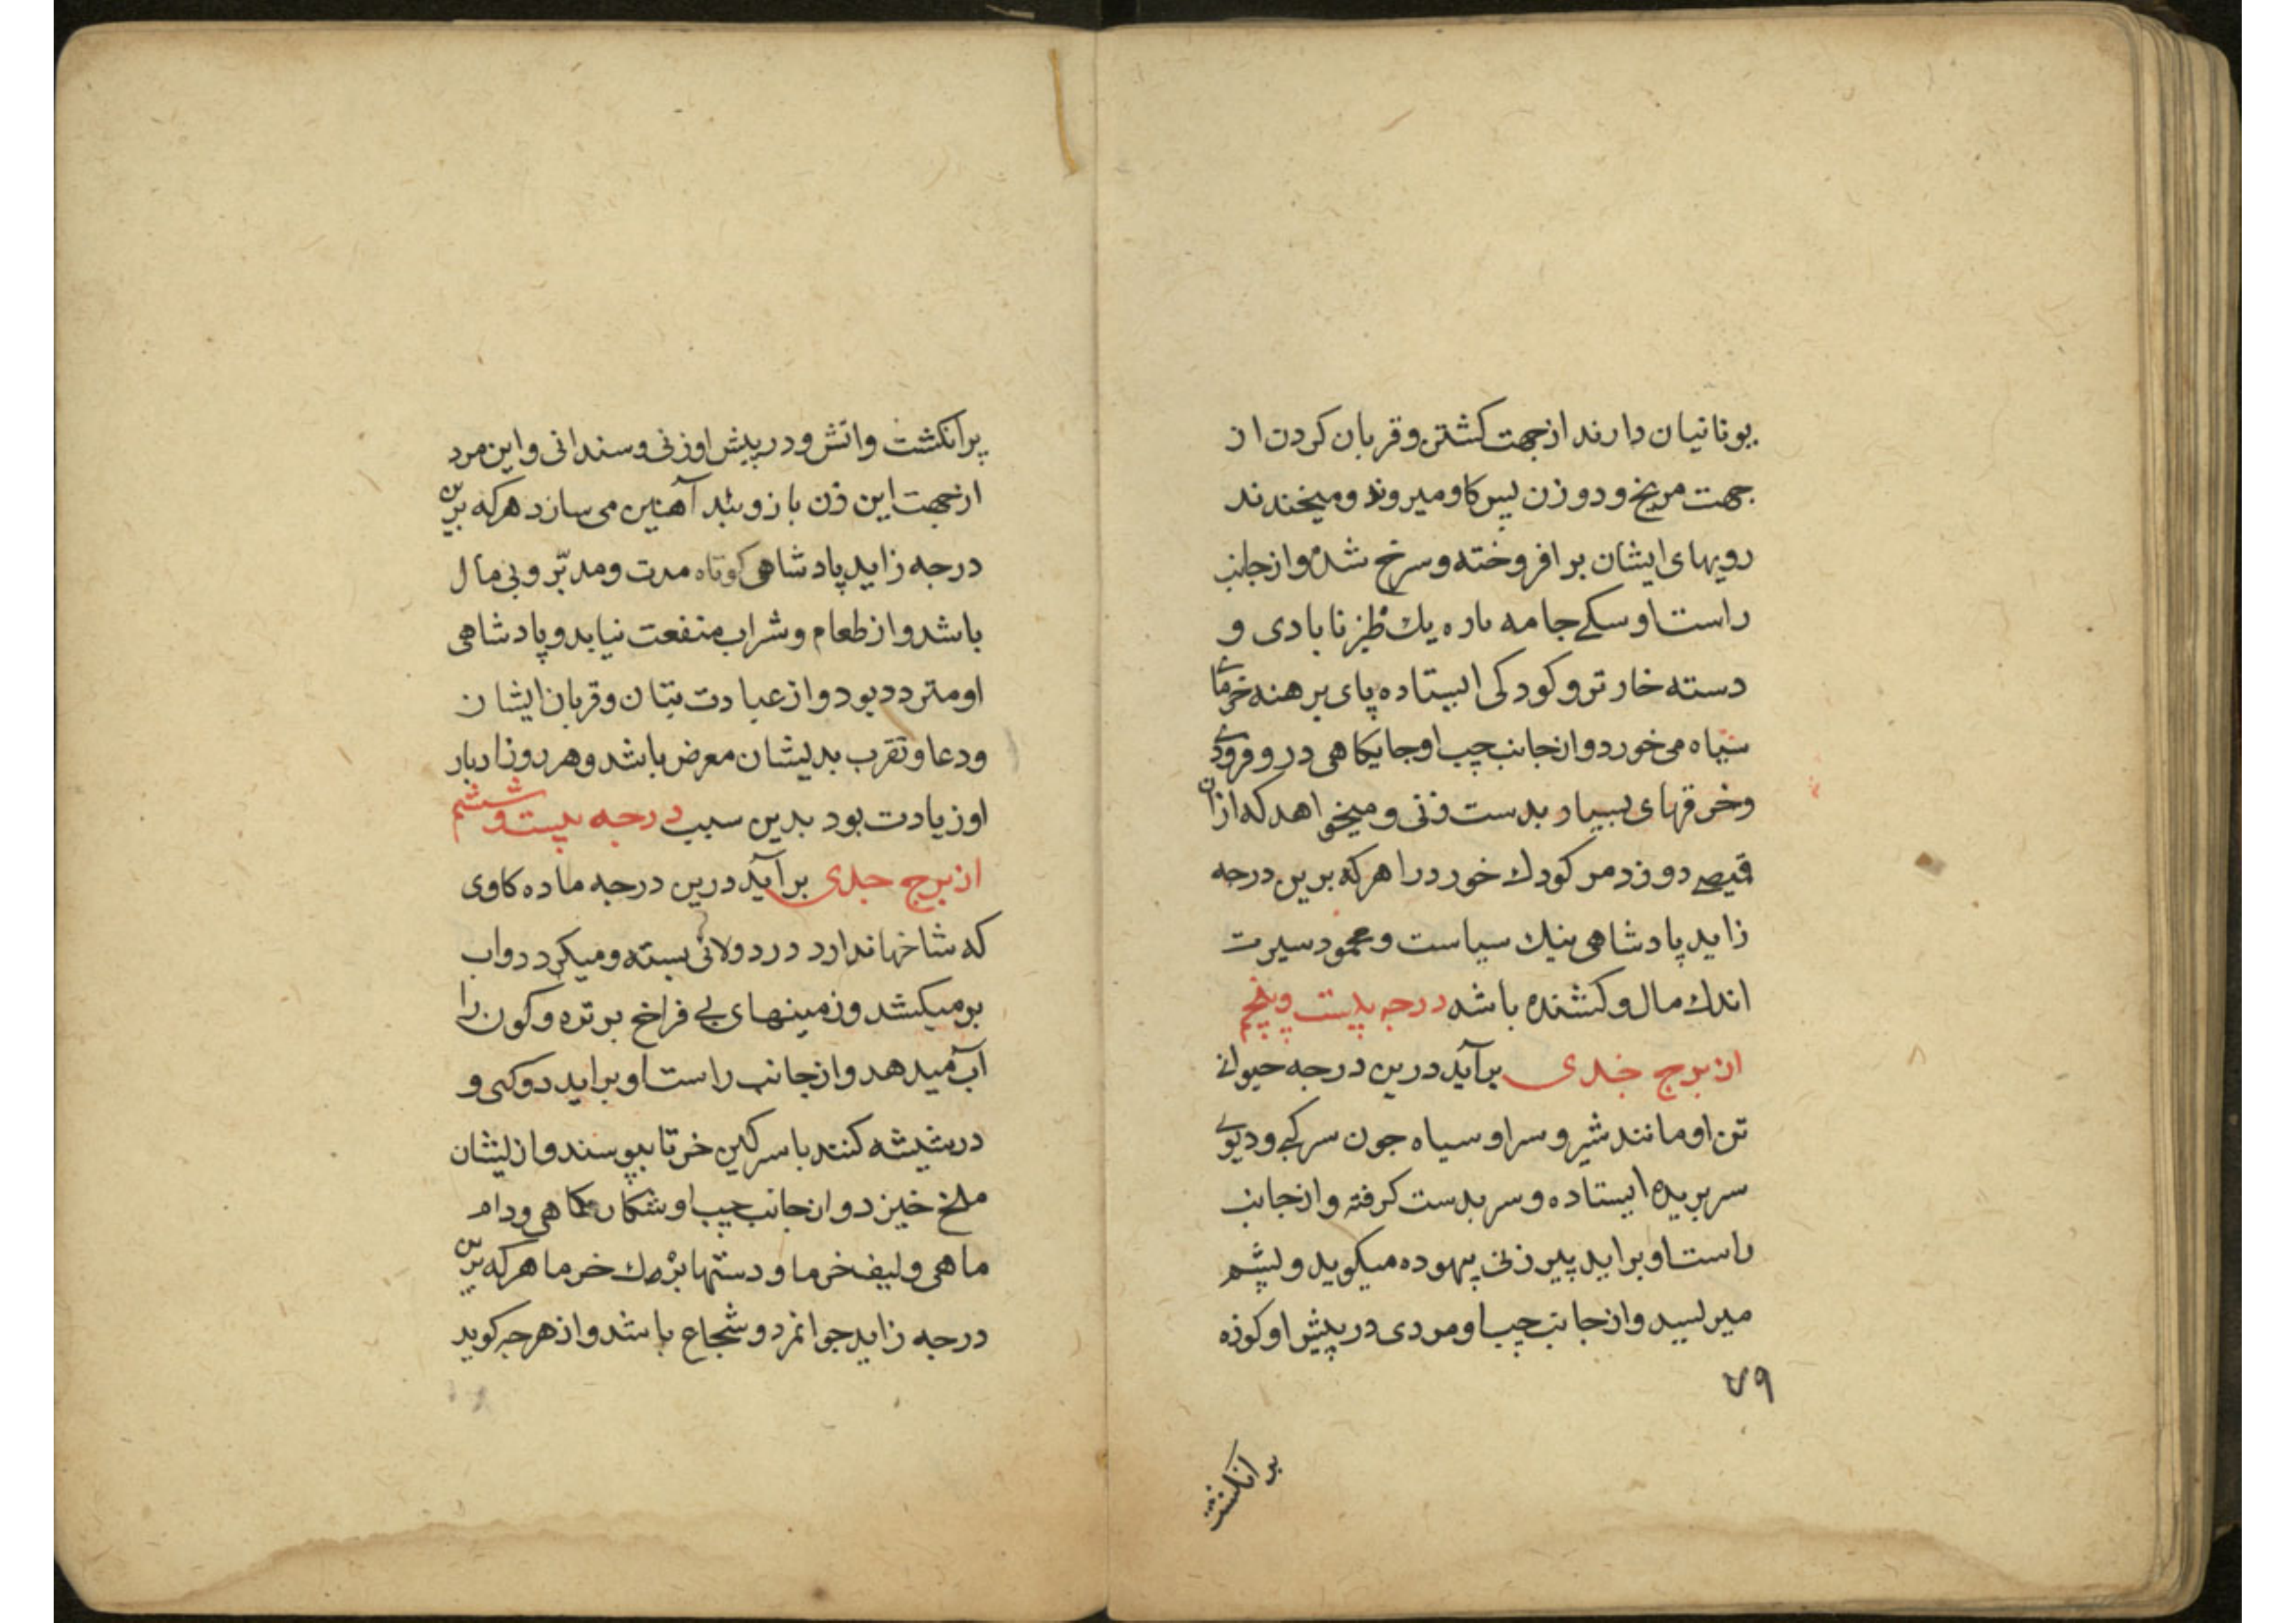 یونانیان دارند از جهت کشتن و قربان کردن از
جهت مریخ و دو زن پس کاو میروند و میخندند
رویهای ایشان بر افروخته و سرخ شده و از جانب
راست او سکے جامه باره یك نا بادی و
دسته خار تر و کودکی ایستاده پای برهنه خرمائے
سیاه می خورد و از جانب چپ او جایکاهی در و فرودے
و خرقهای بسیار بدست زنی و میخواهد که از ان
قمیصے دوزد مر کودك خورد را هر که برین درجه
زاید پادشاهی نیك سیاست و محمود سیرت
اندك مال و کشنده باشد درجه بیست و پنجم
از برج جدی برآید درین درجه حیوانے
تن او مانند شیر و سر او سیاه جون سر کبے و دیوے
سر بریده ایستاده و سر بدست کرفته و از جانب
راست او براید پیر زنی بیهوده میکوید و پشم
میریسد و از جانب چپ او مردی در پیش او کوزه
۷۹
بر انکشت
پر انکشت و اتش و در پیش او زنی و سندانی و این مرد
از جهت این زن بازوبند آهنین می سازد هر که برین
درجه زاید پادشاهی کوتاه مدت و مدبّر و بی مال
باشد و از طعام و شراب منفعت نیابد و پادشاهی
او متردد بود و از عبادت بتان و قربان ایشان
و دعا و تقرب بدیشان معرض باشد و هر روز ادبار
او زیادت بود بدین سبب درجه بیست و ششم
از برج جدی برآید درین درجه ماده کاوی
که شاخها ندارد در دولابی بسته و میکردد و اب
بر میکشد و زمینهای فراخ بر تره و کون را
آب میدهد و از جانب راست او براید دوکی و
در شیشه کنند با سرکین خر تا بپوسند و ازیشان
ملخ خیزد و از جانب چپ او شکار ماهی و دام
ماهی و لیف خرما و دستها خرما هر که برین
درجه زاید جوانمرد و شجاع باشد و از هر جه کوید